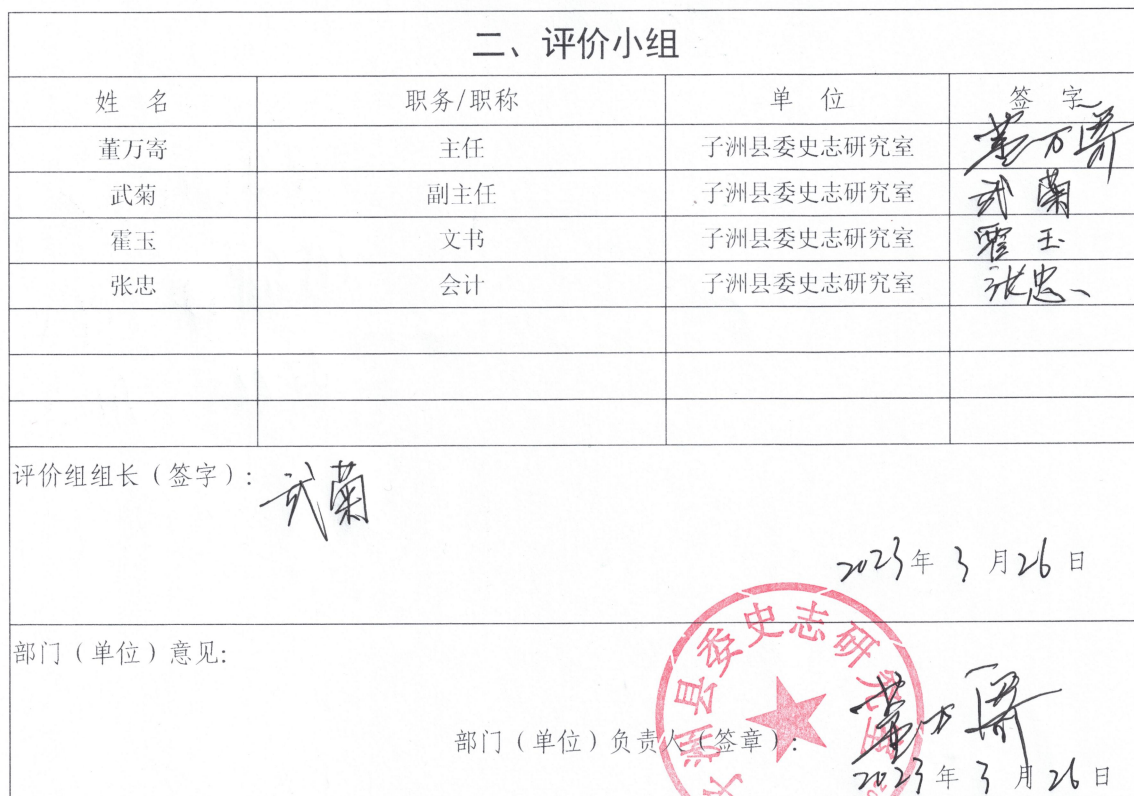 二、评价小组
姓 名 职务/职称 单 位 签 字
董万寄 主任 子洲县委史志研究室 董万寄
武菊 副主任 子洲县委史志研究室 武菊
霍玉 文书 子洲县委史志研究室 霍玉
张忠 会计 子洲县委史志研究室 张忠
评价组组长（签字）: 武菊
2023年3月26日
部门（单位）意见:
子洲县委史志研究室
部门（单位）负责人（签章）: 董万寄
2023年3月26日